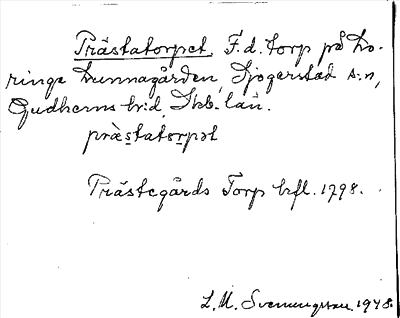 Prästatorpet, F.d. torp på Lo-
ringa Brunnagården, Sjogerstad s:n,
Gudhems hrd, Skb. län.
prästatorpət
Prästegårds Torp hfl. 1798.
L. M. Svenungsson 1948.